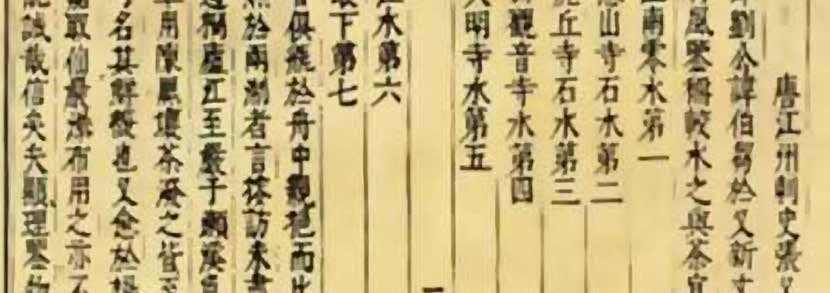 唐江州刺史張又
劉公諱伯芻於又新丈
風鑒稱較水之與茶宜
南零水第一
山寺石水第二
丘寺石水第三
觀音寺水第四
明寺水第五
水第六
下第七
俱瓶於舟中親挹而比
於兩者言搜訪未盡
桐廬江至嚴子瀨溪
用陳黑壞茶潑之皆至
名其鮮馥也又愈於揚
取仙巖瀑布用之亦不
誠哉信矣夫顯理鑒物